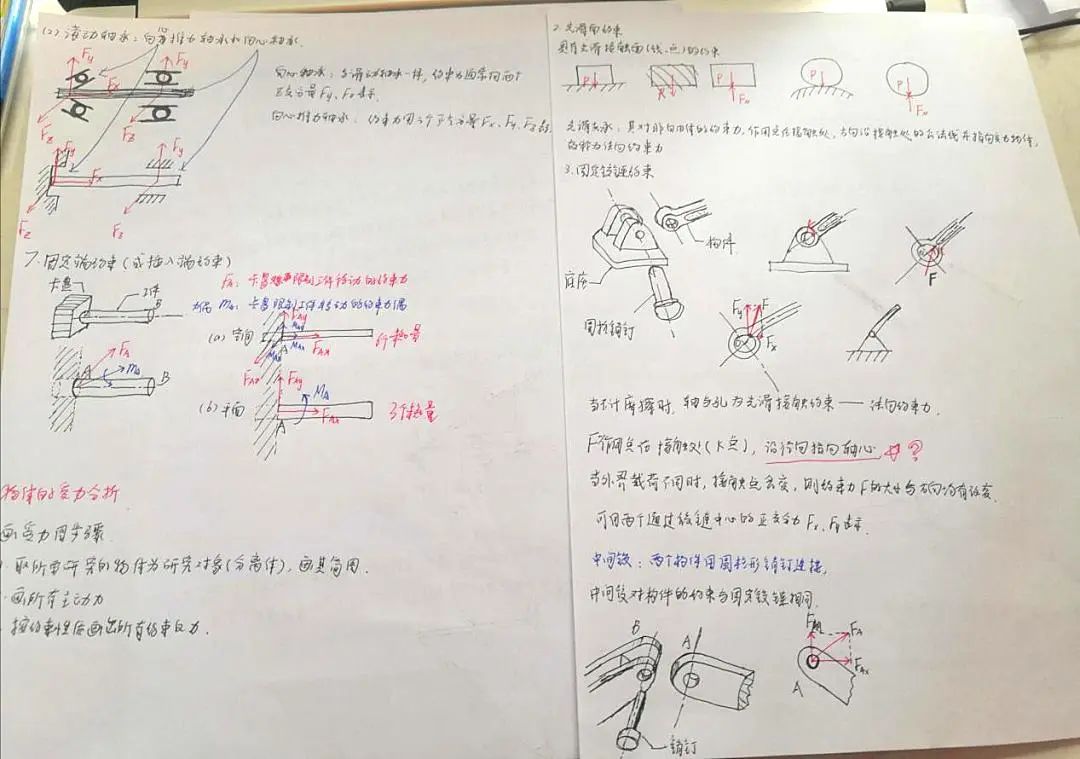 (2) 滚动轴承：向心推力轴承和向心轴承.
Fy
Fy
Fx
Fz
Fz
Fy
Fy
Fx
Fz
Fz
向心轴承：与滑动轴承一样，约束力通常用两个
正交分量Fy、Fz表示.
向心推力轴承：约束力用三个正交分量Fx、Fy、Fz表示
7.固定端约束(或插入端约束)
卡盘
工件
B
FA：卡盘限制工件移动的约束力
力偶 MA：卡盘限制工件转动的约束力偶
(a) 空间
FAy
MAy
MAx
MAz
A
FAx
FAz
6个未知量
A
FA
MA
B
(b) 平面
FAy
MA
FAx
A
3个未知量
物体的受力分析
画受力图步骤
取所要研究的物体为研究对象(分离体)，画其简图.
画所有主动力
按约束性质画出所有约束反力.
2.光滑面约束
具有光滑接触面(线、点)的约束
P
P
FN
P
P
FN
光滑支承，其对非自由体的约束力，作用点在接触处，方向沿接触处的公法线并指向受力物体，
故称为法向约束力
3.固定铰链约束
构件
底座
圆柱销钉
F
Fy
F
Fx
当不计摩擦时，轴与孔为光滑接触约束——法向约束力.
F作用点在接触处(K点)，沿径向指向轴心 ☆？
当外界载荷不同时，接触点会变，则约束力F的大小与方向均有改变.
可用两个通过铰链中心的正交分力Fx、Fy表示.
中间铰：两个构件用圆柱形销钉连接.
中间铰对构件的约束与固定铰链相同.
B
A
销钉
FA
FAx
A